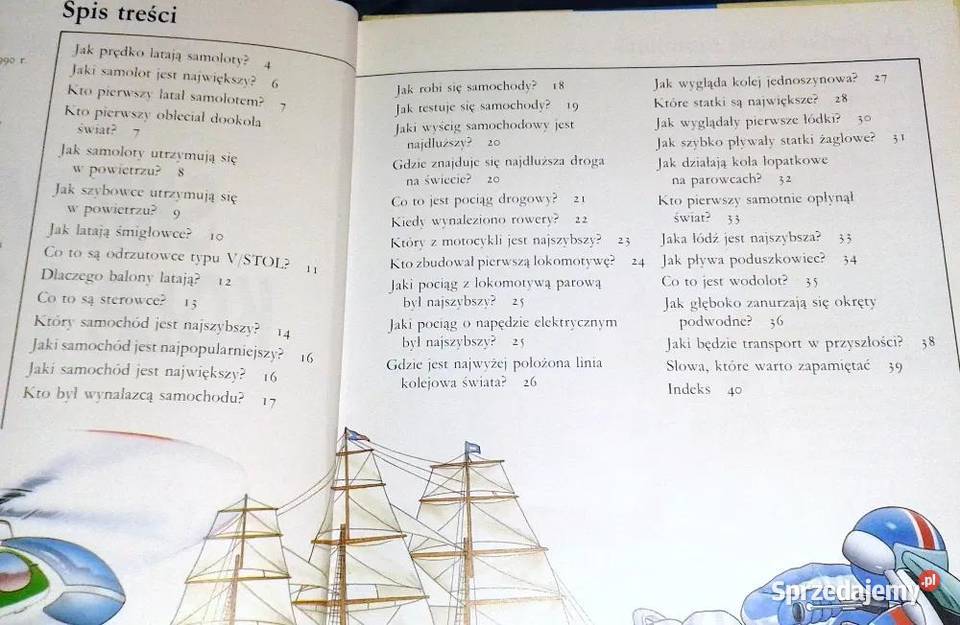 Spis treści
990 r.
Jak prędko latają samoloty? 4
Jaki samolot jest największy? 6
Kto pierwszy latał samolotem? 7
Kto pierwszy obleciał dookoła
świat? 7
Jak samoloty utrzymują się
w powietrzu? 8
Jak szybowce utrzymują się
w powietrzu? 9
Jak latają śmigłowce? 10
Co to są odrzutowce typu V/STOL? 11
Dlaczego balony latają? 12
Co to są sterowce? 13
Który samochód jest najszybszy? 14
Jaki samochód jest najpopularniejszy? 16
Jaki samochód jest największy? 16
Kto był wynalazcą samochodu? 17
Jak robi się samochody? 18
Jak testuje się samochody? 19
Jaki wyścig samochodowy jest
najdłuższy? 20
Gdzie znajduje się najdłuższa droga
na świecie? 20
Co to jest pociąg drogowy? 21
Kiedy wynaleziono rowery? 22
Który z motocykli jest najszybszy? 23
Kto zbudował pierwszą lokomotywę? 24
Jaki pociąg z lokomotywą parową
był najszybszy? 25
Jaki pociąg o napędzie elektrycznym
był najszybszy? 25
Gdzie jest najwyżej położona linia
kolejowa świata? 26
Jak wygląda kolej jednoszynowa? 27
Które statki są największe? 28
Jak wyglądały pierwsze łódki? 30
Jak szybko pływały statki żaglowe? 31
Jak działają koła łopatkowe
na parowcach? 32
Kto pierwszy samotnie opłynął
świat? 33
Jaka łódź jest najszybsza? 33
Jak pływa poduszkowiec? 34
Co to jest wodolot? 35
Jak głęboko zanurzają się okręty
podwodne? 36
Jaki będzie transport w przyszłości? 38
Słowa, które warto zapamiętać 39
Indeks 40
Sprzedajemy.pl